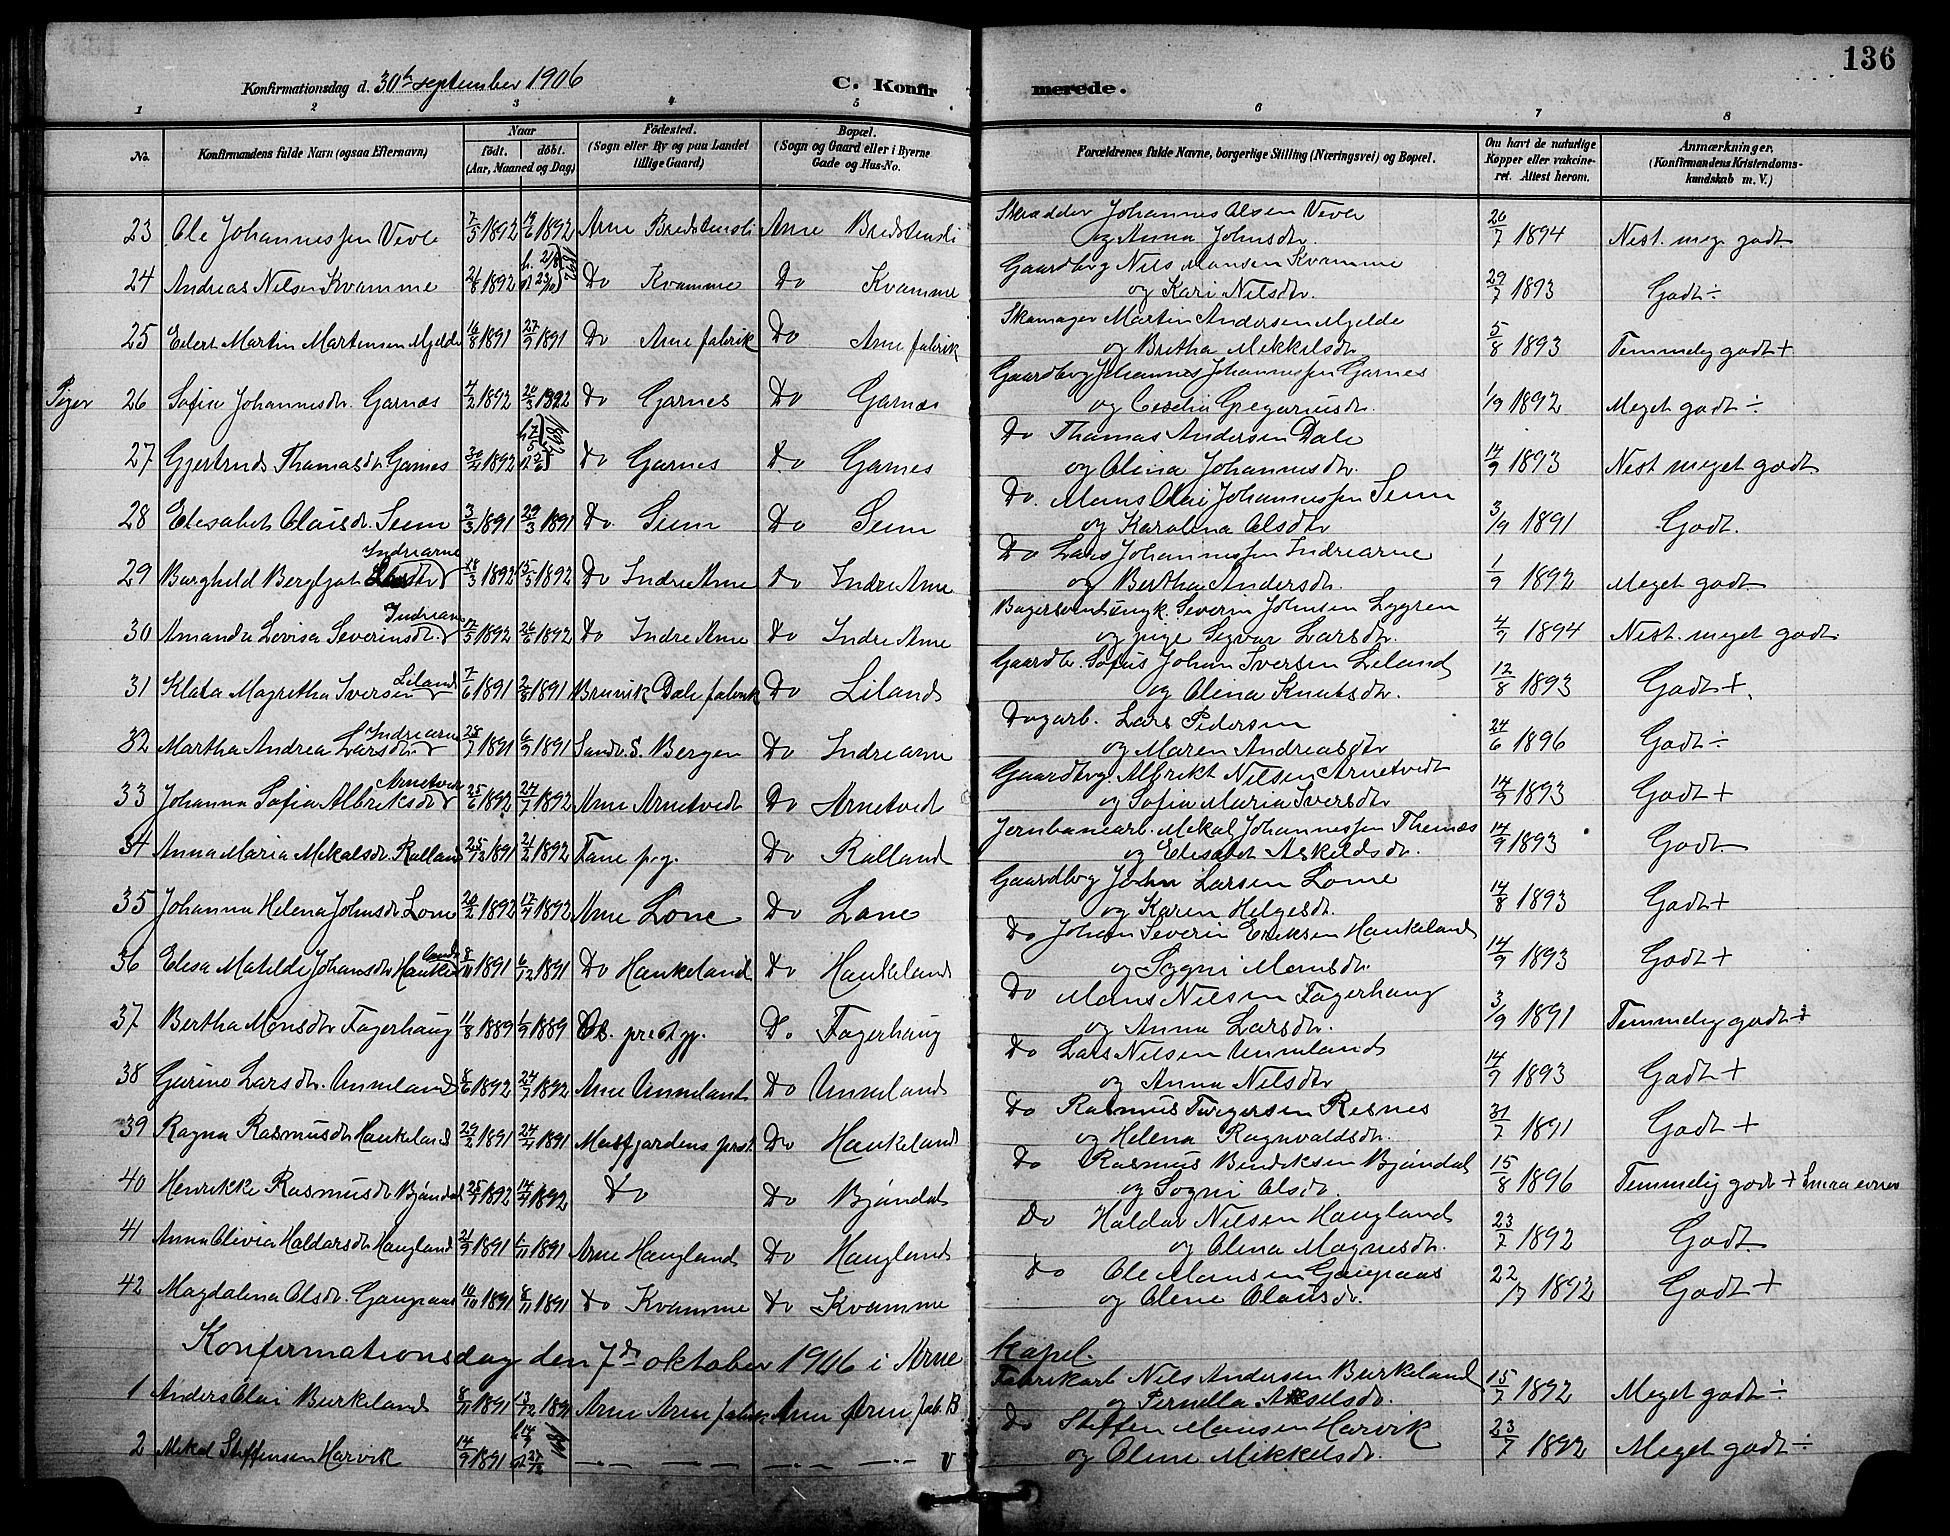 136
Konfirmationsdag d. 30th september 1906 C. Konfirmerede.
1 2 3 4 5 6 7 8
No. Konfirmandens fulde Navn (ogsaa Efternavn) Naar født. døbt. (Aar, Maaned og Dag) Fødested. (Sogn eller By og paa Landet tillige Gaard) Bopæl. (Sogn og Gaard eller i Byerne Gade og Hus-No. Forældrenes fulde Navne, borgerlige Stilling (Næringsvei) og Bopæl. Om havt de naturlige Kopper eller vakcineret. Attest herom. Anmærkninger. (Konfirmandens Kristendomskundskab m. V.)
23 Ole Johannessen Vevle 7/5 1892 19/6 1892 Arne Bredstensli Arne Bredstensli Skrædder Johannes Olsen Vevle og Anna Johnsdtr. 20/7 1894 Nest. meg. godt
24 Andreas Nilsen Kvamme 21/8 1892 h. 21/8 st 23/10 1892 Do Kvamme Do Kvamme Gaardbrg Nils Monsen Kvamme og Kari Nilsdtr. 29/7 1893 Godt ÷
25 Eilert Martin Martensen Mjelde 16/8 1891 27/9 1891 Do Arne fabrik Do Arne fabrik Skomager Martin Andersen Mjelde og Bretha Mikkelsdtr 5/8 1893 Temmelig godt +
Piger 26 Sofia Johannesdtr. Garnes 4/2 1892 20/3 1892 Do Garnes Do Garnes Gaardbrg Johannes Johannessen Garnes og Cecelia Gregoriusdtr. 1/9 1892 Meget godt ÷
27 Gjertrud Thomasdtr Garnes 30/4 1892 1892 Do Garnes Do Garnes Do Thomas Andersen Dale og Olina Johannesdtr. 14/9 1893 Nest meget godt
28 Elisabet Olaisdtr. Seim 3/3 1891 29/3 1891 Do Seim Do Seim Do. Mons Olai Johannessen Seim og Karolina Olsdtr 3/9 1891 Godt.
29 Borghild Bergljot Larsdtr Indrearne 28/3 1892 15/5 1892 Do Indre Arne Do Indre Arne Do Lars Johannessen Indrearne og Bertha Andersdtr. 1/9 1892 Meget godt
30 Amanda Lovisa Severinsdtr. Indrearne 1892 26/6 1892 Do Indre Arne Do Indre Arne Bagersvend ungk. Severin Johnsen Lygren og pige Signar Larsdtr. 4/9 1894 Nest. meget godt
31 Klara Magretha Iversen Liland 7/6 1891 2/8 1891 Bruvik Dale fabrik Do Liland Gaardbr. Sofus Johan Iversen Liland og Olina Knutsdtr. 12/8 1893 Godt +.
32 Martha Andrea Larsdtr Indrearne 28/7 1891 6/9 1891 Sandv. S. Bergen Do Indrearne Dagarb. Lars Pedersen og Maren Andreasdtr 24/6 1896 Godt ÷
33 Johanna Sofia Albriktsdtr Arnetveit 25/6 1892 24/7 1892 Arne Arnetvedt Do Arnetvedt Gaardbrg. Albrikt Nilsen Arnetvedt og Sofia Maria Iversdtr 14/9 1893 Godt +
34 Anna Maria Mikalsdtr. Ralland 25/12 1891 21/2 1892 Fane p.g. Do Ralland Jernbanearb. Mikal Johannessen Thenæs og Elisabet Askeldsdtr. 14/9 1893 Godt.
35 Johanna Helena Johnsdtr Lone 20/2 1892 17/4 1892 Arne Lone Do Lone Gaardbrg John Larsen Lone og Karen Helgesdtr. 14/8 1893 Godt +
36 Elisa Matilde Johansdtr Haukeland 8/11 1891 6/12 1891 Do Haukeland Do Haukeland Do Johan Severin Eriksen Haukeland og Sygni Monsdtr. 14/9 1893 Godt +
37 Bertha Monsdtr Fagerhaug 11/8 1889 1/9 1889 Os. prestgj. Do Fagerhaug Do Mons Nilsen Fagerhaug og Anna Larsdtr. 3/9 1891 Temmelig godt ÷
38 Gurine Larsdtr. Unneland 8/6 1892 24/7 1892 Arne Unneland Do Unneland Do Lars Nilsen Unneland og Anna Nilsdtr 14/9 1893 Godt +
39 Ragna Rasmusdtr Haukeland 29/2 1891 24/4 1891 Masfjordens prst. Do Haukeland Do Rasmus Torgersen Risnes og Helena Ragnvaldsdtr. 31/7 1891 Godt +
40 Henrikke Rasmusdtr Bjøndal 25/2 1892 14/4 1892 Do Do Bjøndal Do Rasmus Bendiksen Bjøndal og Sygni Olsdtr. 15/8 1896 Temmelig godt + smaa evner
41 Anna Olivia Haldorsdtr Haugland 21/9 1891 1/11 1891 Arne Haugland Do Haugland Do Haldor Nilsen Haugland og Olina Magnesdtr. 23/7 1892 Godt.
42 Magdalena Olsdtr. Gaupaas 10/10 1891 8/11 1891 Do Kvamme Do Kvamme Do Ole Monsen Gaupaas og Olene Olausdtr. 22/7 1892 Godt +
Konfirmationsdag den 7de oktober 1906 i Arne kapel.
1 Anders Olai Birkeland 8/11 1891 13/12 1891 Arne Arne fabrik Arne Arne fab. B Fabrikarb Nils Andersen Birkeland og Pernella Akselsdtr. 15/7 1892 Meget godt ÷
2 Mikal Steffensen Harvik 14/9 1891 1891 — — — — — — v Do Steffen Monsen Harvik og Olene Mikkelsdtr. 23/7 1892 Meget godt ÷